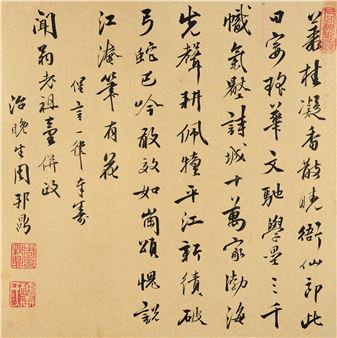 叢桂凝香散曉衙仙郎此
日宴瑤華文馳學壘三千
幟氣壓詩城十萬家渤海
先聲耕佩犢平江新績破
弓蛇巴吟敢效如崗頌愧說
江淹筆有花
俚言一律奉壽
聞翁老祖臺併政
治晚生周邦鼎